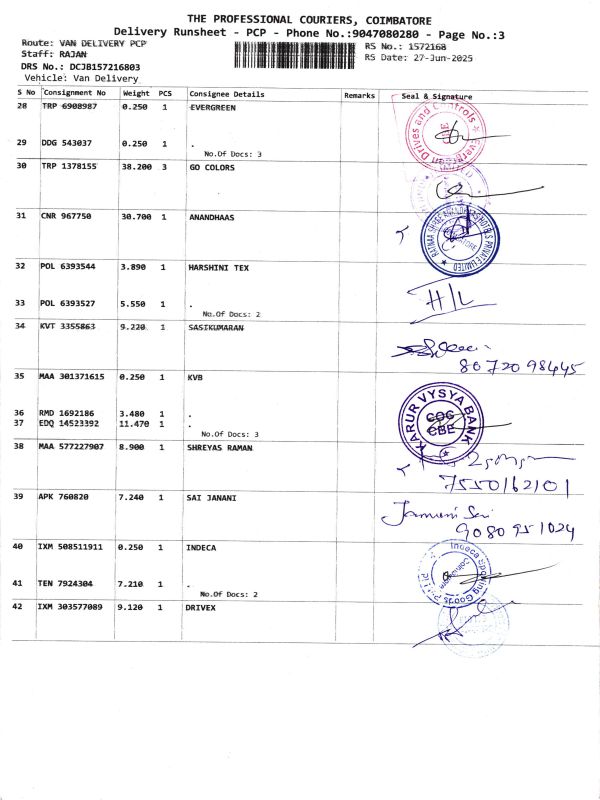 THE PROFESSIONAL COURIERS, COIMBATORE
Delivery Runsheet - PCP - Phone No.:9047080280 - Page No.:3
Route: VAN DELIVERY PCP
Staff: RAJAN
DRS No.: DCJB157216803
Vehicle: Van Delivery
RS No.: 1572168
RS Date: 27-Jun-2025
S No Consignment No Weight PCS Consignee Details Remarks Seal & Signature
28 TRP 6908987 0.250 1 EVERGREEN
Evergreen Drives and Controls
CBE
29 DDG 543037 0.250 1 .
No.Of Docs: 3
30 TRP 1378155 38.200 3 GO COLORS
31 CNR 967750 30.700 1 ANANDHAAS
PRIVATE LIMITED
32 POL 6393544 3.890 1 HARSHINI TEX
33 POL 6393527 5.550 1 .
No.Of Docs: 2
34 KVT 3355863 9.220 1 SASIKUMARAN
80720 98445
35 MAA 301371615 0.250 1 KVB
KARUR VYSYA BANK
COG
CBE
36 RMD 1692186 3.480 1 .
37 EDQ 14523392 11.470 1 .
No.Of Docs: 3
38 MAA 577227907 8.900 1 SHREYAS RAMAN
7550162101
39 APK 760820 7.240 1 SAI JANANI
9080951024
40 IXM 508511911 0.250 1 INDECA
Indeca Sporting Goods Pvt Ltd
41 TEN 7924304 7.210 1 .
No.Of Docs: 2
42 IXM 303577089 9.120 1 DRIVEX